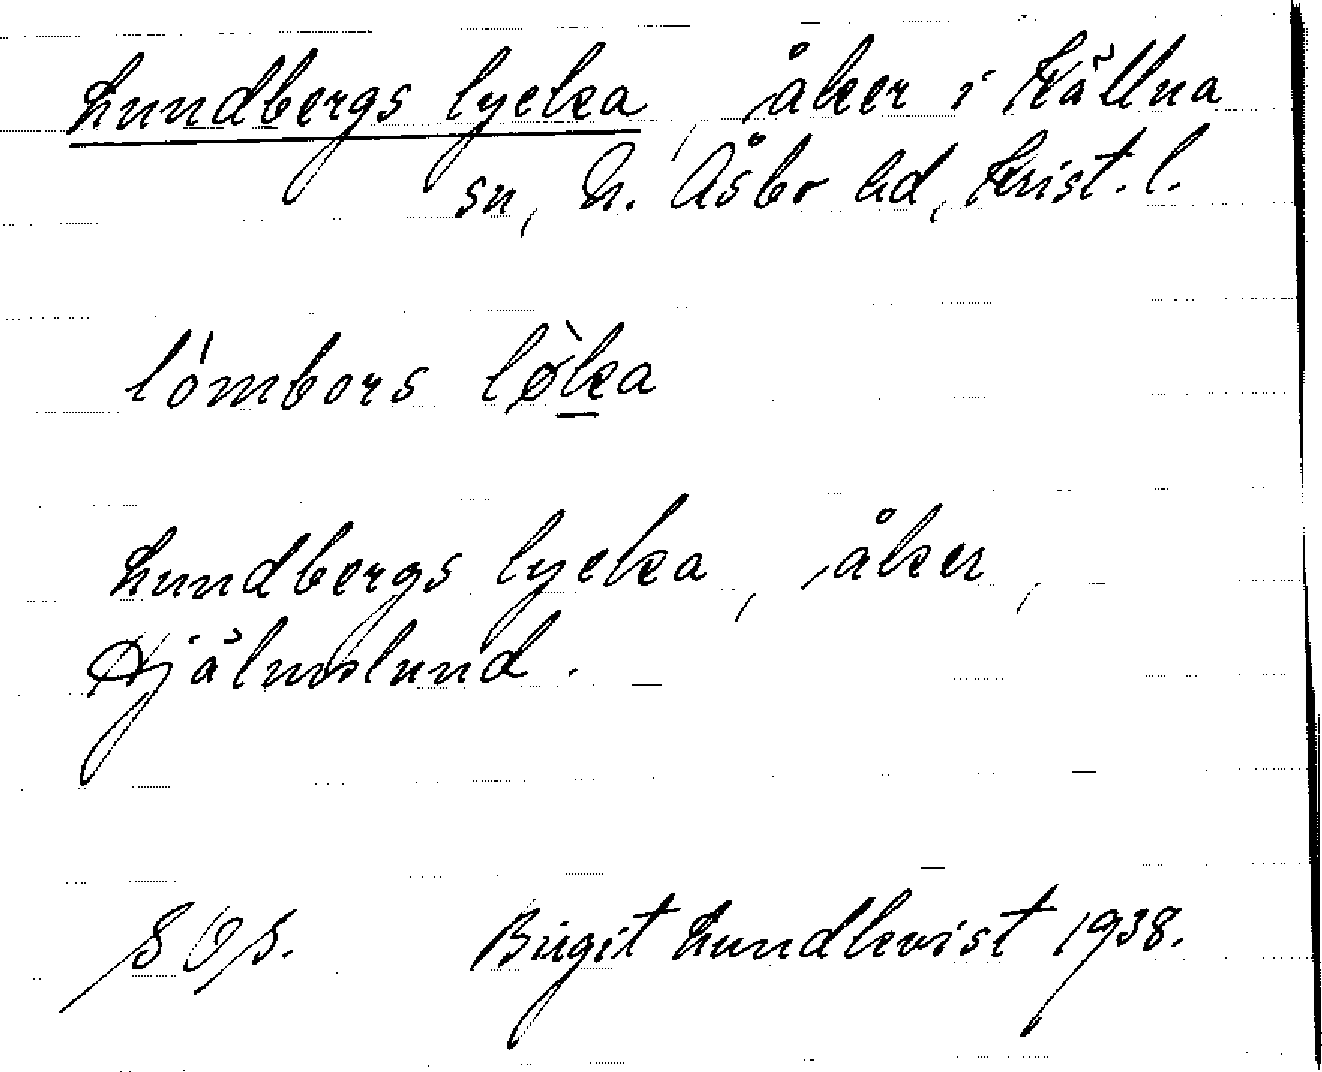 Lundbergs lycka, åker i Källna
sn, N. Åsbo hd, Krist. l.
lómbors lø̀ka
Lundbergs lycka, åker,
Hjälmslund.
Birgit Lundkvist 1938.